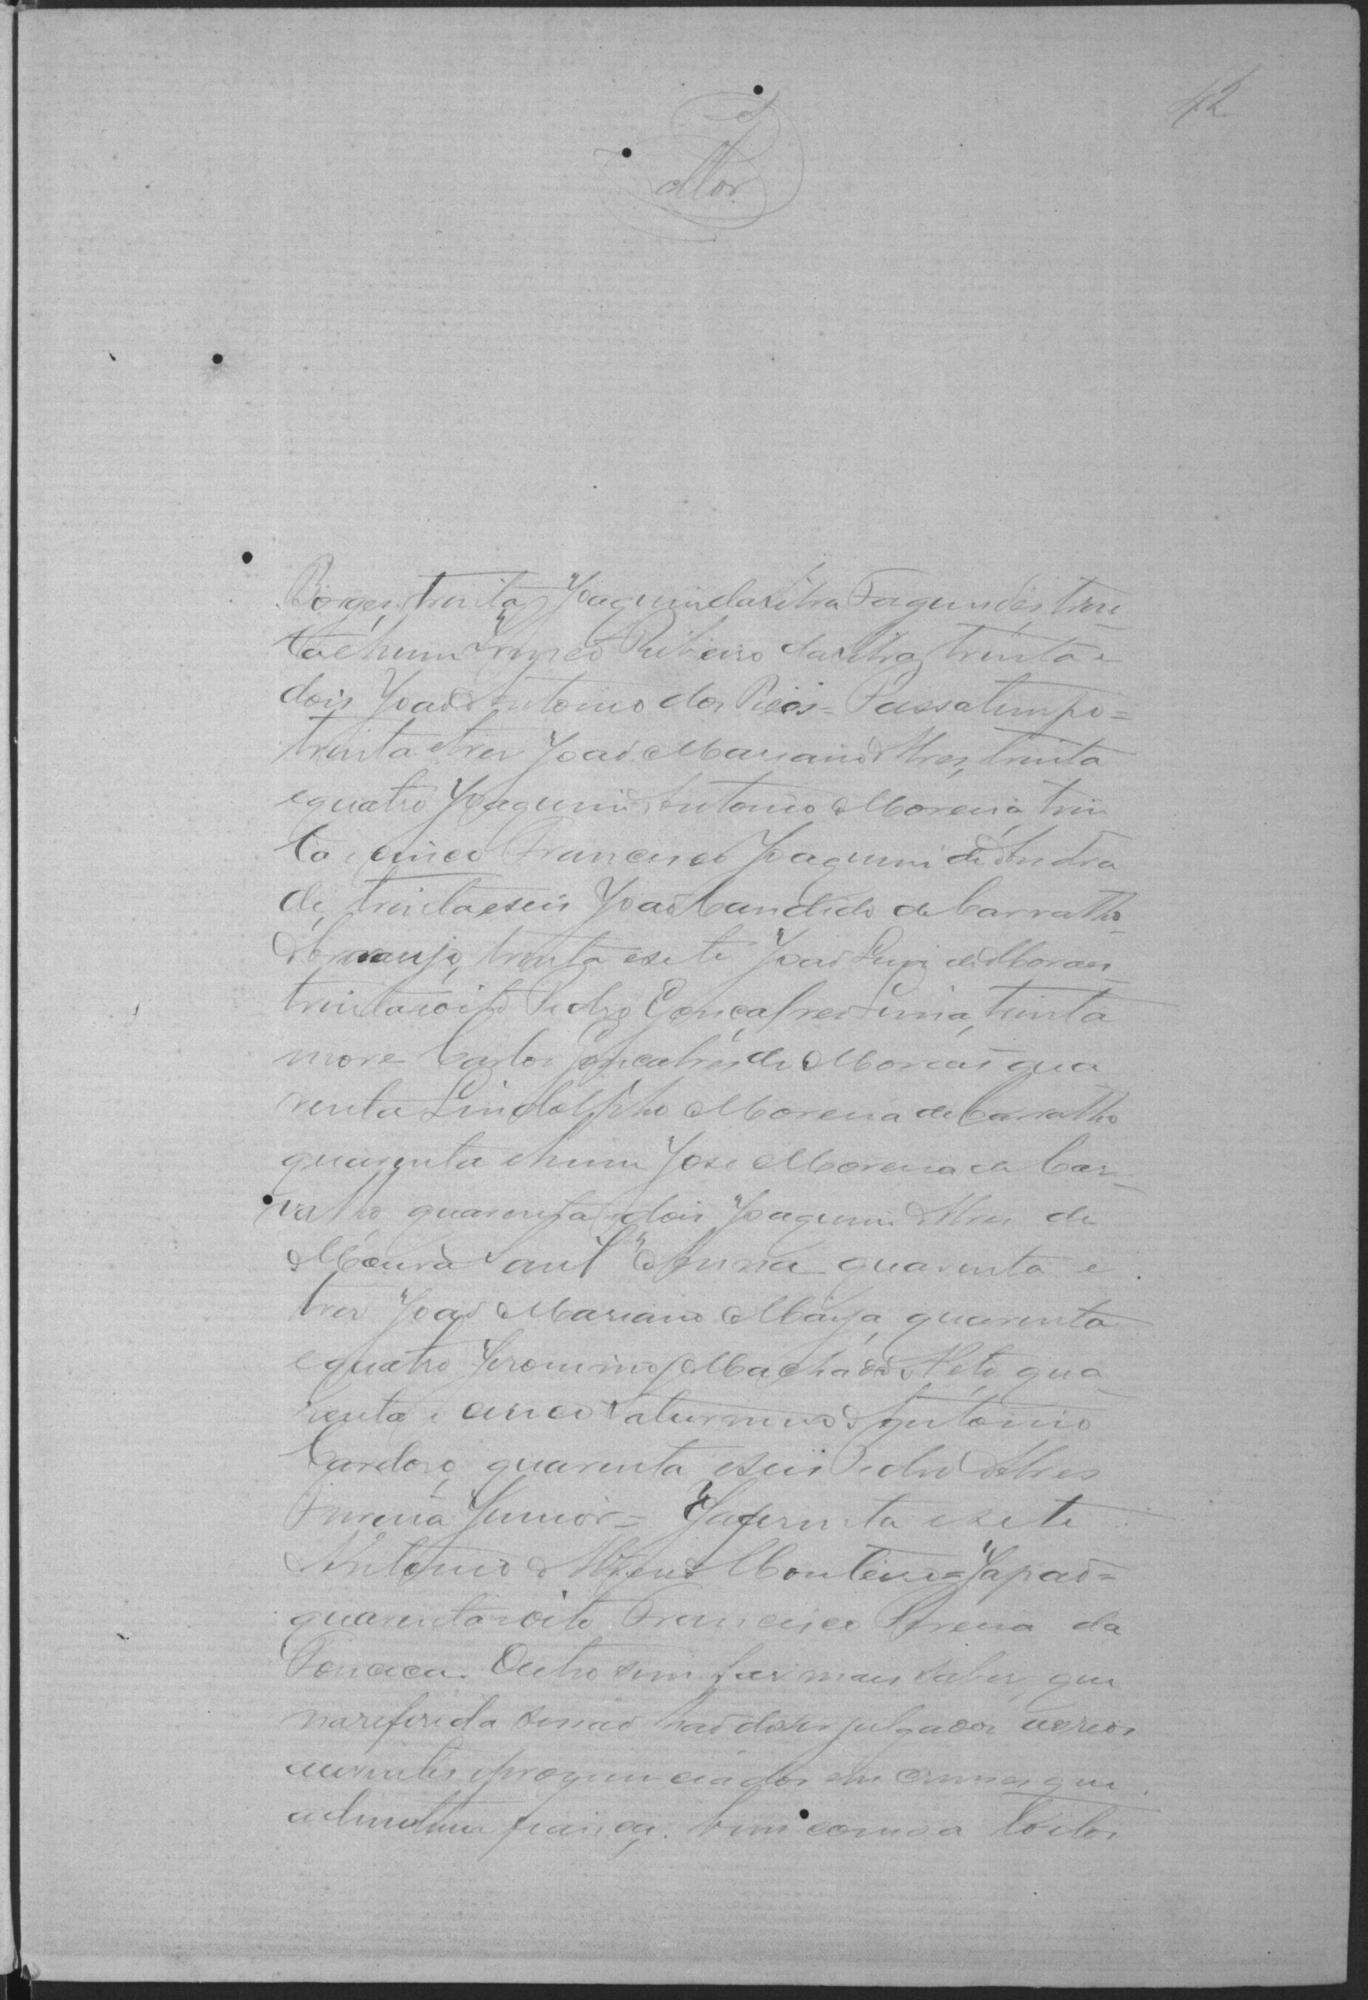 42
Borges, trinta Joaquim da Silva Fagundes, trin-
ta e hum Irineo Ribeiro da Silva, trinta e
dois João Antonio dos Reis = Passatempo =
trinta e tres João Mariano Alves, trinta
e quatro Joaquim Antonio Moreira, trin
ta e cinco Francisco Joaquim de Andra
de, trinta e seis João Candido de Carvalho
Araujo, trinta e sete João Luiz de Moraes
trinta e oito Pedro Gonçalves Lima, trinta
nove Carlos Gonçalves de Moraes qua
renta Lindolpho Moreira de Carvalho
quarenta e hum José Moreira de Car-
valho quarenta e dois Joaquim Alves de
Moura Sant'Anna quarenta e
tres João Mariano Maya, quarenta
e quatro Jeronimo Machado Neto, qua-
renta e cinco Saturnino Antonio
Cardoso, quarenta e seis Pedro Alves
Pereira Junior = quarenta e sete
Antonio Monteiro = Japão =
quarenta e oito Francisco Pereira da
Fonceca. Outro sim faz mais saber, que
na referida sessão hão de ser julgados os reos
auzentes e pronunciados em crimes que
admittem fiança, bem como a todos